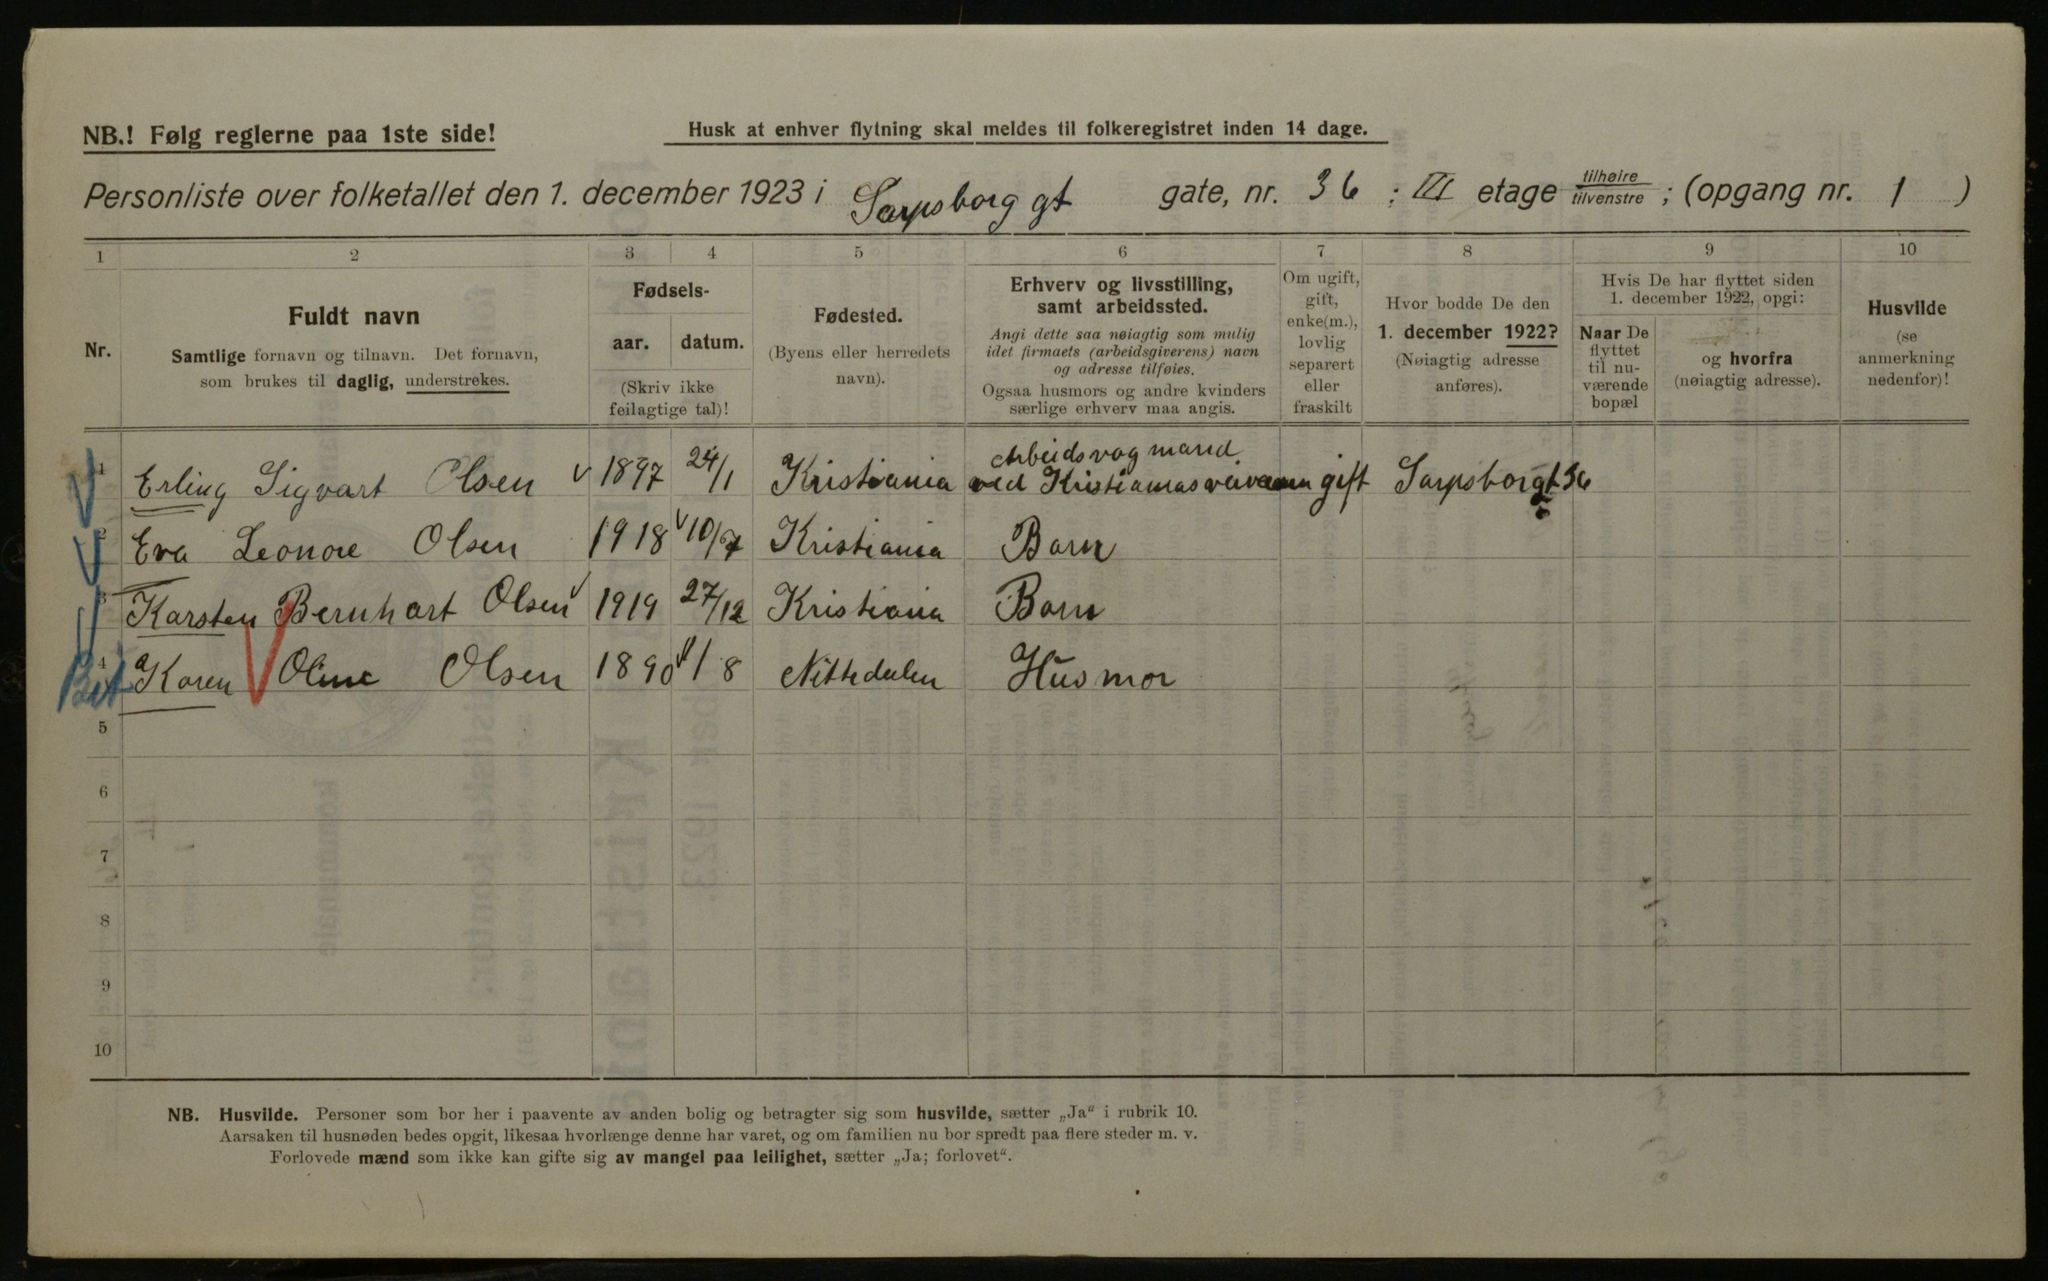 NB.! Følg reglerne paa 1ste side!
Husk at enhver flytning skal meldes til folkeregistret inden 14 dage.
Personliste over folketallet den 1. december 1923 i Sarpsborg gt gate, nr. 36 ; III etage tilhøire/tilvenstre ; (opgang nr. 1 )
1 2 3 4 5 6 7 8 9 10
Nr.
Fuldt navn
Samtlige fornavn og tilnavn. Det fornavn,
som brukes til daglig, understrekes.
Fødsels-
aar. datum.
(Skriv ikke
feilagtige tal)!
Fødested.
(Byens eller herredets
navn).
Erhverv og livsstilling,
samt arbeidssted.
Angi dette saa nøiagtig som mulig
idet firmaets (arbeidsgiverens) navn
og adresse tilføies.
Ogsaa husmors og andre kvinders
særlige erhverv maa angis.
Om ugift,
gift,
enke(m.),
lovlig
separert
eller
fraskilt
Hvor bodde De den
1. december 1922?
(Nøiagtig adresse
anføres).
Hvis De har flyttet siden
1. december 1922, opgi:
Naar De
flyttet
til nu-
værende
bopæl
og hvorfra
(nøiagtig adresse).
Husvilde
(se
anmerkning
nedenfor)!
Arbeidsvogmand
1 Erling Sigvart Olsen 1897 24/1 Kristiania ved Kristianias gift Sarpsborgt 36
2 Eva Leonore Olsen 1918 10/7 Kristiania Barn
3 Karsten Bernhart Olsen 1919 27/12 Kristiania Barn
4 Karen Oline Olsen 1890 1 8 Nittedalen Husmor
5
6
7
8
9
10
NB. Husvilde. Personer som bor her i paavente av anden bolig og betragter sig som husvilde, sætter „Ja“ i rubrik 10.
Aarsaken til husnøden bedes opgit, likesaa hvorlænge denne har varet, og om familien nu bor spredt paa flere steder m. v.
Forlovede mænd som ikke kan gifte sig av mangel paa leilighet, sætter „Ja; forlovet“.